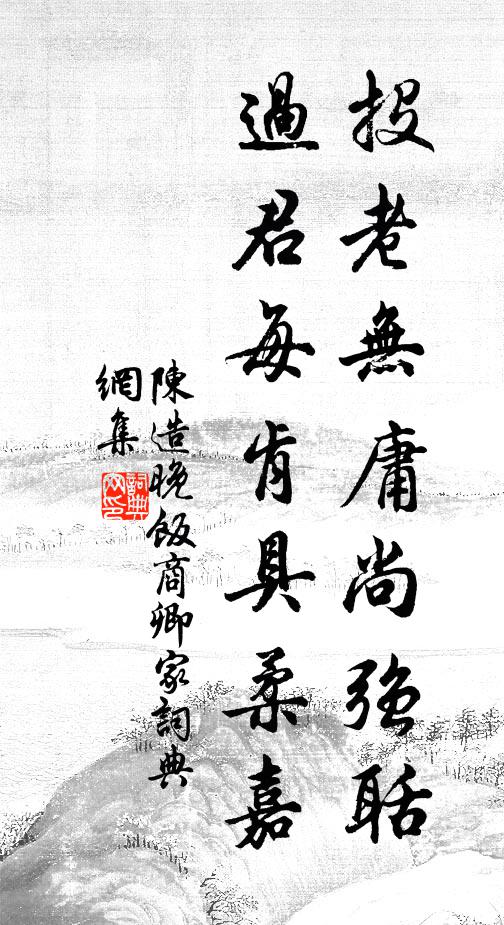 投老無庸尚強聒
過君每肯具柔嘉
陳造晚飯商卿家詞典
網集
詞典網印